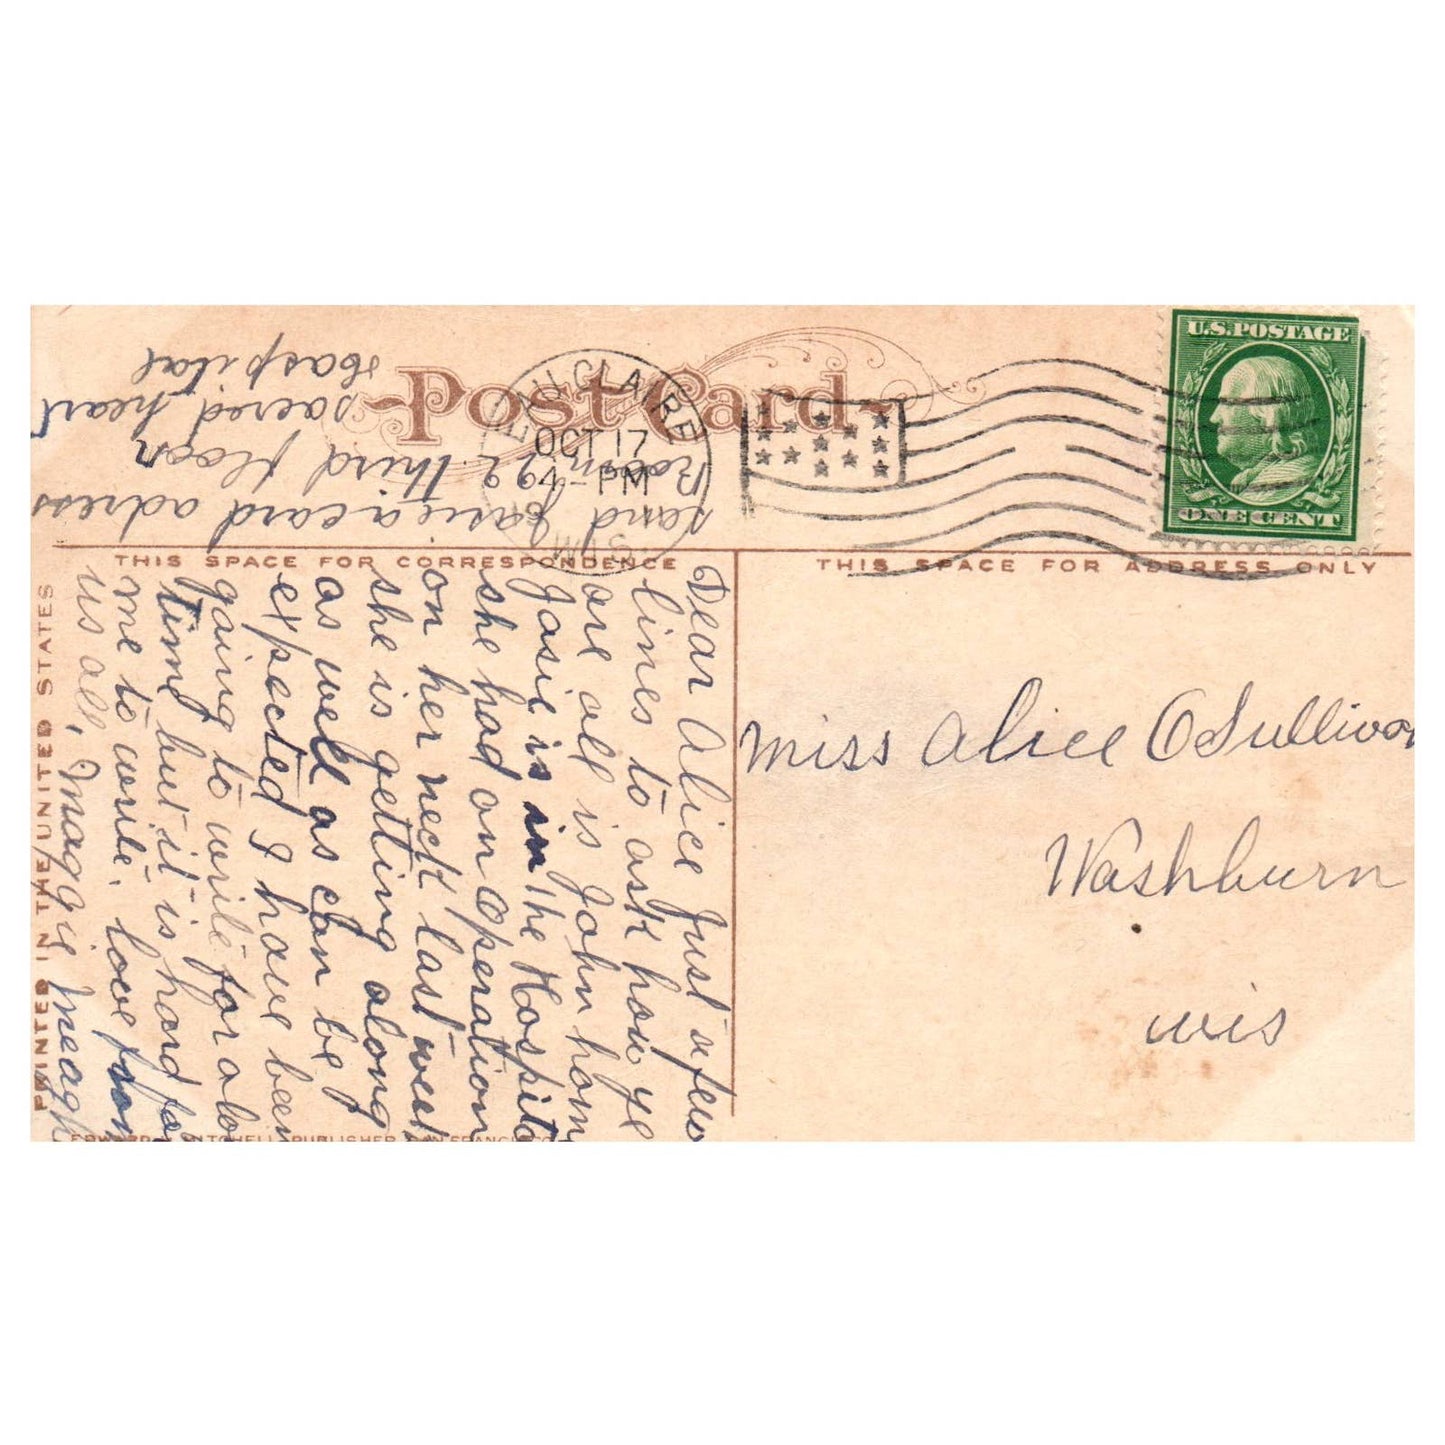 Post Card
EAU CLAIRE
OCT 17
4 - PM
WIS.
U.S. POSTAGE
ONE CENT
THIS SPACE FOR CORRESPONDENCE
THIS SPACE FOR ADDRESS ONLY
PRINTED IN THE UNITED STATES
Miss Alice OSullivan
Washburn
wis
Dear Alice Just a few
lines to ask how ye
are all is John home
Josie is in the Hospital
she had an operation
on her neck last week
she is getting along
as well as can be
expected I have been
going to write for a lo
time but it is hard fo
me to write. love from
us all, Maggie Meagh
send Josie a card adress
Room 92 third floor
sacred heart
Haspital
PUBLISHER